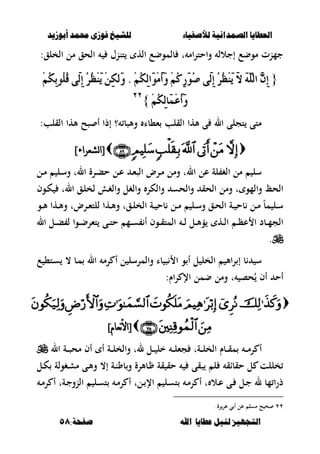 العطايا الصمدانية للأصفياء للشيخ فوزى محمد أبوزيد
جهزت موضع إجلاله واحترامه، فالموضع الذى يتنزل فيه الحق من الخلق:
{ إِنَّ اللَّهَ لاَ يَنْظُرُ إِلَى صُوَرِكُمْ وَأَمْوَالِكُمْ . وَلكِنْ يَنْظُرُ إِلَى قُلُوبِكُمْ
وَأَعْمَالِكُمْ } ٢٢
متى يتجلى الله فى هذا القلب بعطاءه وهباته؟ إذا أصبح هذا القلب:
﴿ إِلَّا مَنْ أَتَى ٱللَّهَ بِقَلْبٍ سَلِيمٍ ﴾ [الشعراء]
سليم من الغفلة عن الله، ومن مرض البعد عن حضرة الله، وسليم من
الحظ والهوى، ومن الحقد والحسد والكره والغل والغش لخلق الله، فيكون
سليماً من ناحية الحق وسليم من ناحية الخلق، وهذا للتعرض، وهذا هو
الجهاد الأعظم الذى يؤهل له المتقون أنفسهم حتى يتعرضوا لفضل الله
.
سيدنا إبراهيم الخليل أبو الأنبياء والمرسلين أكرمه الله بما لا يستطيع
أحد أن يُحصيه، ومن ضمن الإكرام:
﴿ وَكَذَٰلِكَ نُرِىٓ إِبْرَٰهِيمَ مَلَكُوتَ ٱلسَّمَٰوَٰتِ وَٱلْأَرْضِ وَلِيَكُونَ
مِنَ ٱلْمُوقِنِينَ ﴾ [الأنعام]
أكرمه بمقام الخلة، فجعله خليل لله، والخلة أى أن محبة الله
تخللت كل حقائقه فلم يبقى فيه حقيقة ظاهرة وباطنة إلا وهى مشغولة بكل
ذراتها لله جل فى علاه، أكرمه بتسليم الإبن، أكرمه بتسليم الزوجة، أكرمه
٢٢ صحيح مسلم عن أبي هريرة.
التجهيز لنيل عطايا الله صفحة:٥٨